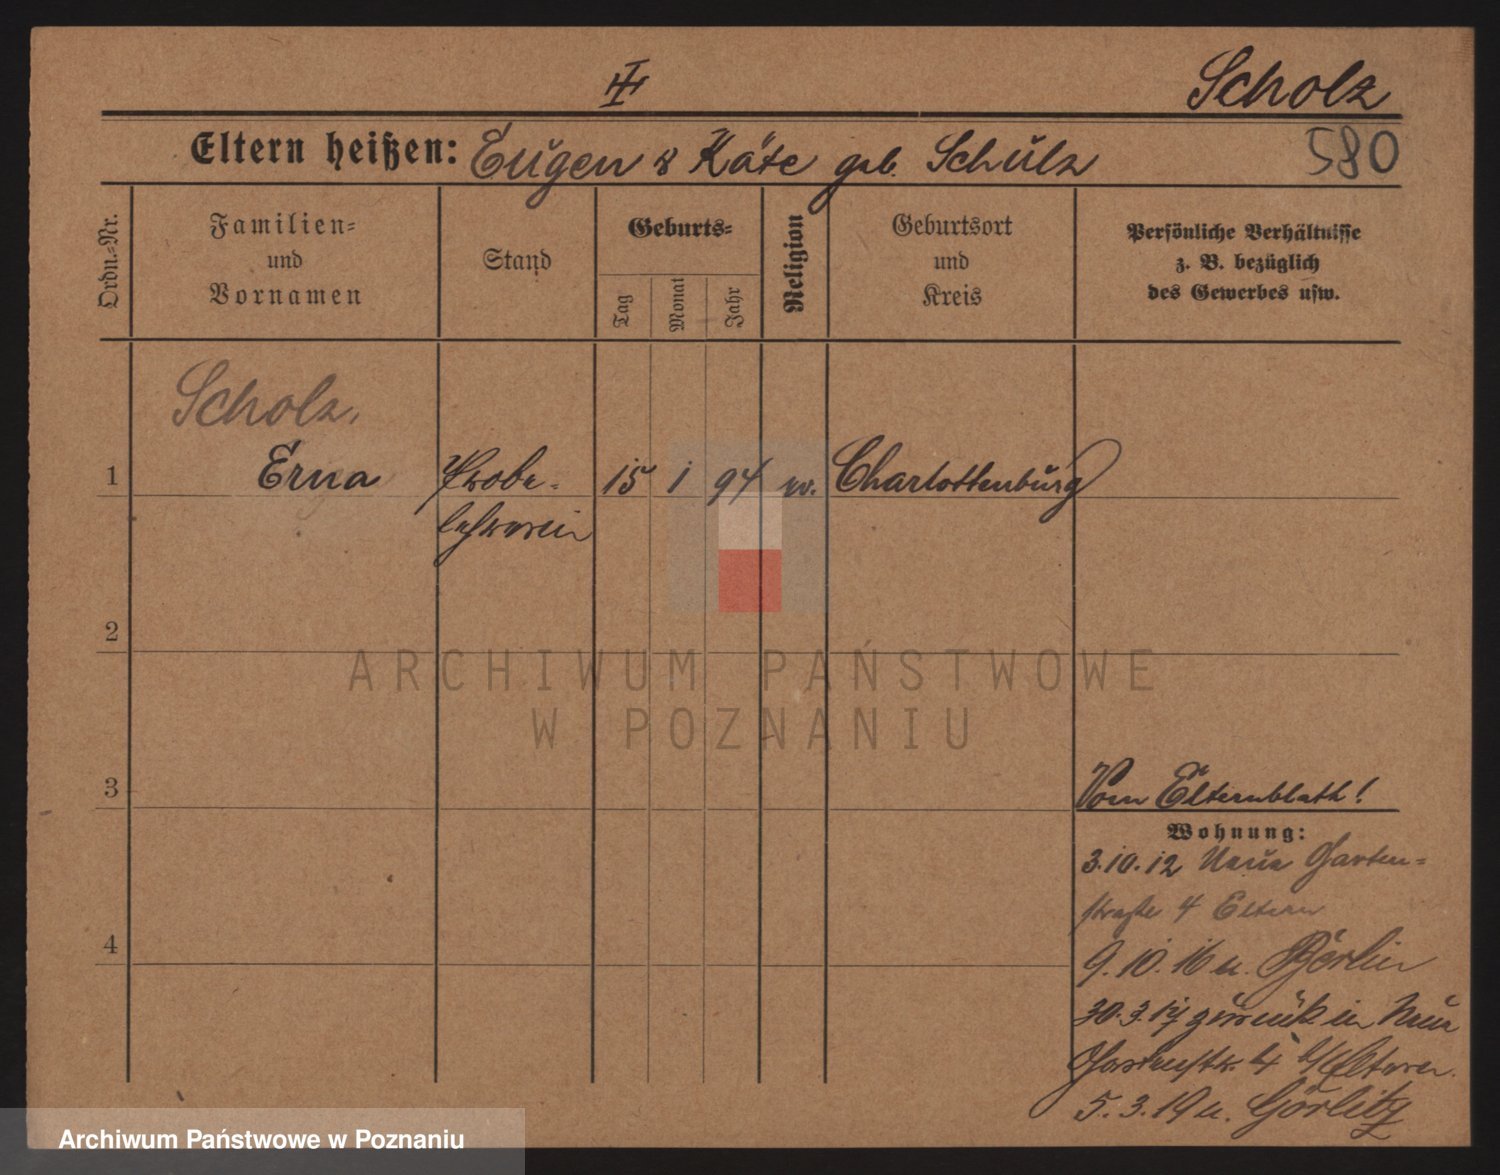 III
Scholz
Eltern heißen: Eugen & Käte geb. Schulz
580
Ordn.-Nr.
Familien-
und
Vornamen
Stand
Geburts-
Tag
Monat
Jahr
Religion
Geburtsort
und
Kreis
Persönliche Verhältnisse
z. B. bezüglich
des Gewerbes usw.
Scholz,
1 Erna Probe- 15 1 94 Charlottenburg
lehrerin
2
ARCHIWUM PAŃSTWOWE
W POZNANIU
3
Vom Elternblatt!
Wohnung:
3.10.12 Neue Garten-
straße 4 Eltern
4
9.10.16 n. Berlin
30.3.17 zurück in Neue
Gartenstr. 4 b/Eltern
5.3.19 n. Görlitz
Archiwum Państwowe w Poznaniu